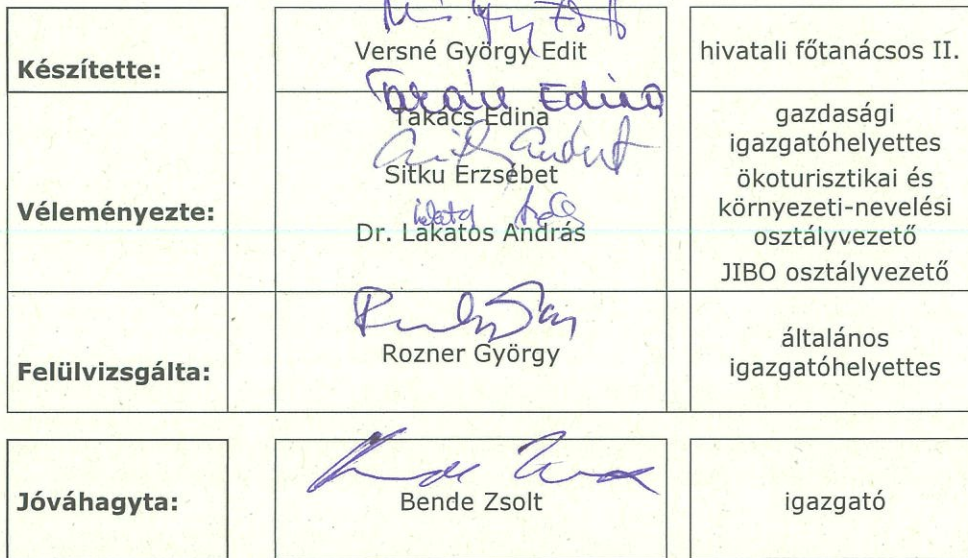 Készítette:
Versné György Edit
hivatali főtanácsos II.
Véleményezte:
Takács Edina
Takács Edina
Sitku Erzsébet
Dr. Lakatos András
gazdasági
igazgatóhelyettes
ökoturisztikai és
környezeti-nevelési
osztályvezető
JIBO osztályvezető
Felülvizsgálta:
Rozner György
általános
igazgatóhelyettes
Jóváhagyta:
Bende Zsolt
igazgató